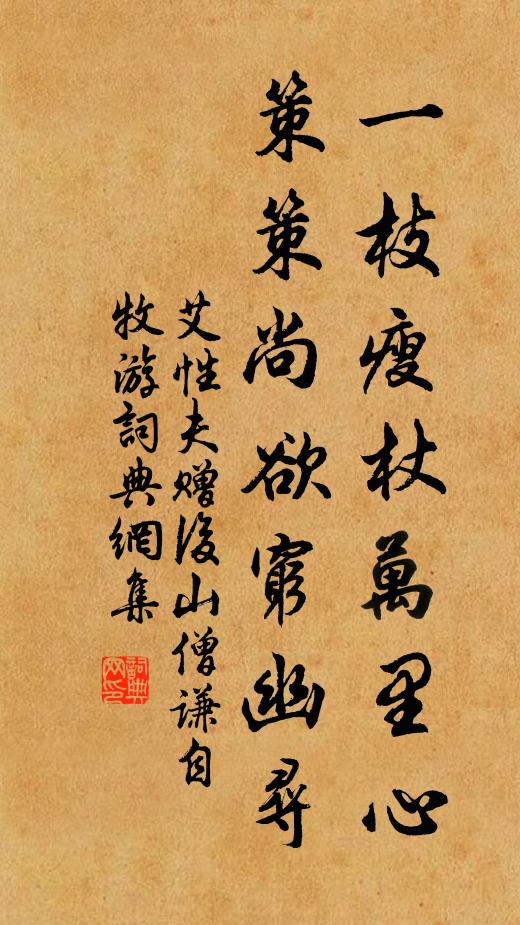 一枝瘦杖萬里心
策策尚欲窮幽尋
艾性夫贈後山僧謙自
牧游詞典網集
詞典
网印